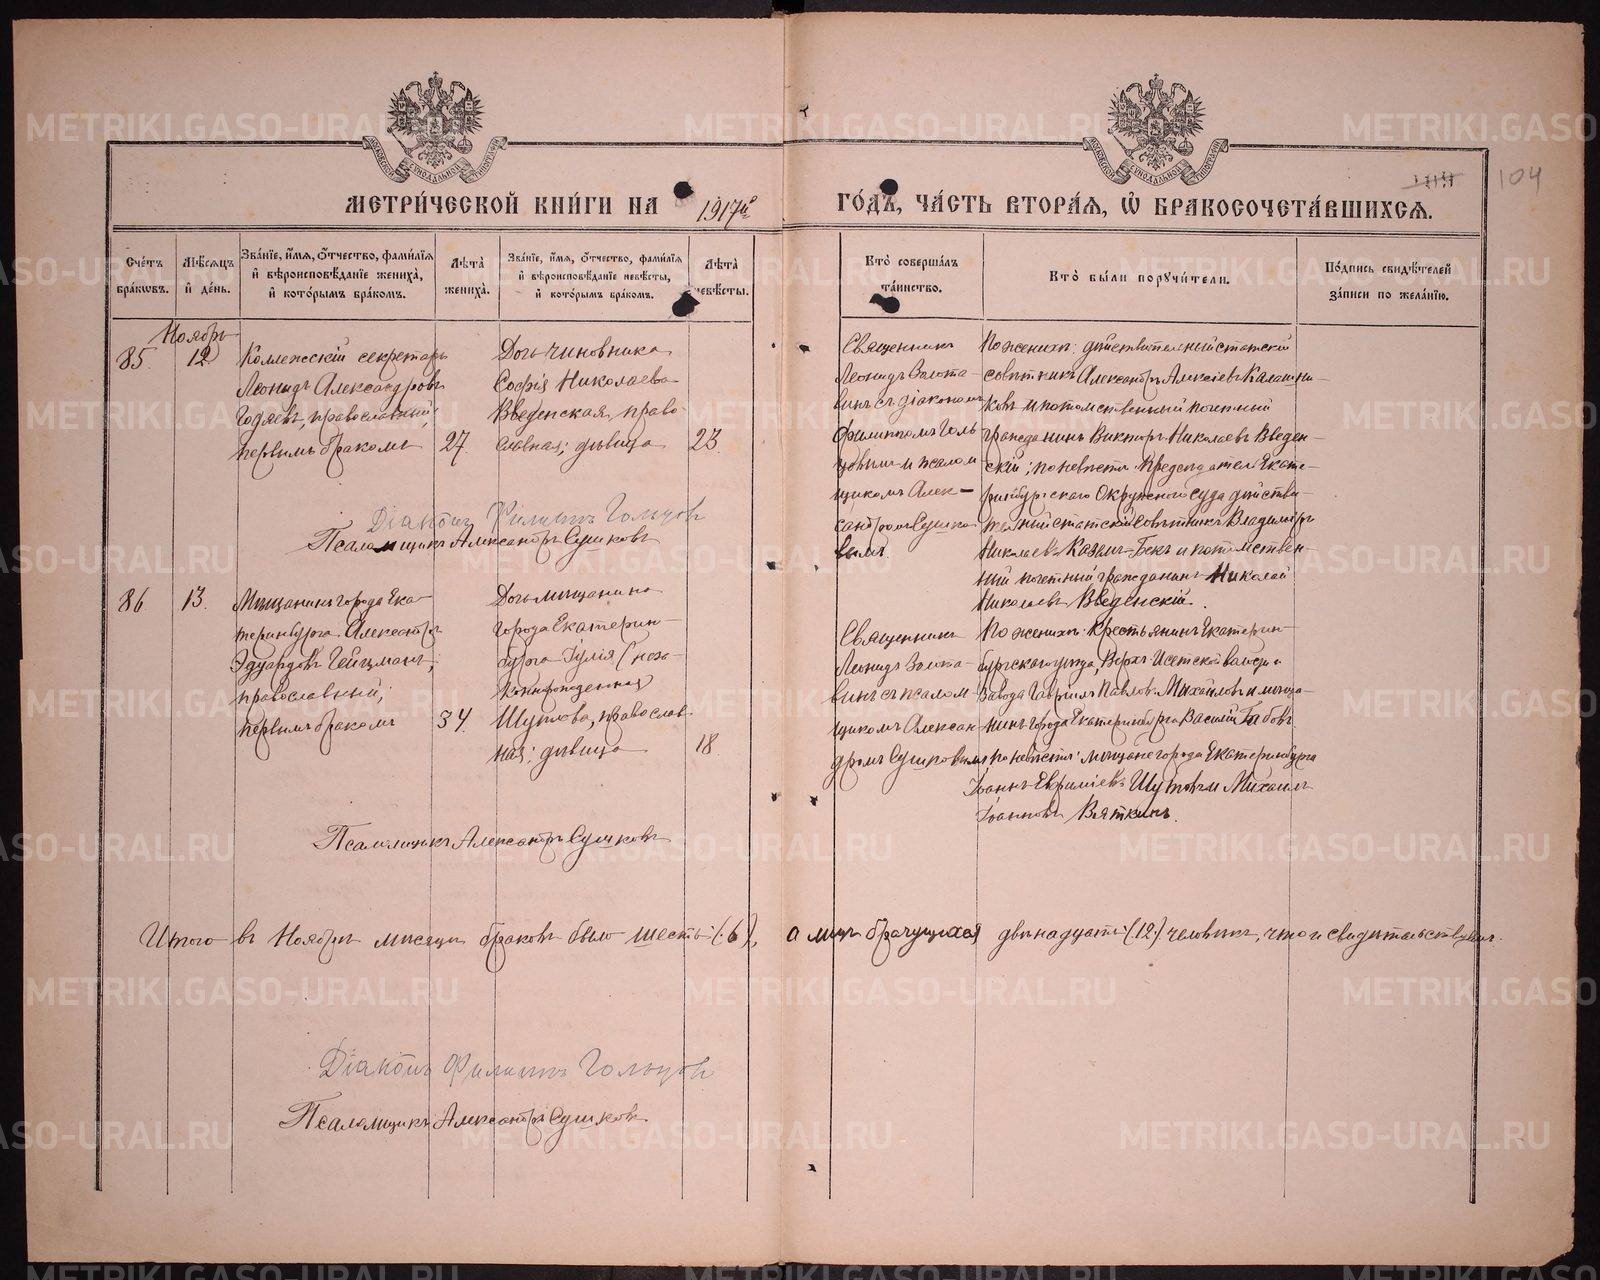 МОСКОВСКОЙ СѴНОДАЛЬНОЙ ТИПОГРАФІИ
МОСКОВСКОЙ СѴНОДАЛЬНОЙ ТИПОГРАФІИ
104
МЕТРИ́ЧЕСКОЙ КНИ́ГИ НА 1917й
ГО́ДЪ, ЧА́СТЬ ВТОРА́Я, Ѽ БРАКОСОЧЕТА́ВШИХСЯ.
Сче́тъ бра́ковъ.
Мѣ́сяцъ и҆ де́нь.
Зва́нїе, и҆́мя, ѻ҆́тчество, фами́лїя и҆ вѣроисповѣ́данїе жениха̀, и҆ кото́рымъ бра́комъ.
Лѣ́та жениха̀.
Зва́нїе, и҆́мя, ѻ҆́тчество, фами́лїя и҆ вѣроисповѣ́данїе невѣ́сты, и҆ кото́рымъ бра́комъ.
Лѣ́та невѣ́сты.
Кто̀ соверша́лъ та́инство.
Кто̀ бы́ли поручи́тели.
По́дпись свидѣ́телей за́писи по жела́нїю.
Ноябрь
85. 12
Коллежскій секретарь
Леонидъ Александровъ
православный,
первымъ бракомъ
27.
Дочь чиновника
Софія Николаева
Введенская, право
славная; дѣвица
23.
Священникъ
Леонидъ Золота-
винъ съ діакономъ
Филиппомъ Голь
цовымъ и псалом
щикомъ Алек-
сандромъ Сушко
вымъ.
По женихѣ: дѣйствительный статскій
совѣтникъ Александръ Алексіевъ Калашни-
ковъ и потомственный почетный
гражданинъ Викторъ Николаевъ Введен-
скій; по невѣстѣ: Предсѣдатель Екате-
ринбургскаго Окружнаго суда дѣйстви-
тельный статскій совѣтникъ Владиміръ
Николаевъ Казем-Бекъ и потомствен-
ный почетный гражданинъ Николай
Николаевъ Введенскій.
Діаконъ Филиппъ Гольцовъ
Псаломщикъ Александръ Сушковъ
86 13.
Мѣщанинъ города Ека-
теринбурга Александръ
Эдуардовъ Гейцманъ,
православный;
первымъ бракомъ
34.
Дочь мѣщанина
города Екатерин-
бурга Іулія (неза-
коннорожденная)
Шутова, православ
ная; дѣвица
18.
Священникъ
Леонидъ Золота-
винъ съ псалом
щикомъ Алексан
дромъ Сушковымъ
По женихѣ: Крестьянинъ Екатерин-
бургскаго уѣзда, Верхъ-Исетской волости и
завода Гавріилъ Павловъ Михайловъ и мѣща-
нинъ города Екатеринбурга Василій Бабовъ
по невѣстѣ: мѣщане города Екатеринбурга
Іоаннъ Евфиміевъ Шутовъ и Михаилъ
Іоанновъ Вяткинъ.
Псаломщикъ Александръ Сушковъ
Итого въ Ноябрѣ мѣсяцѣ браковъ было шесть (6), а лицъ брачущихся двѣнадцать (12) человѣкъ, что и свидѣтельствуемъ.
Діаконъ Филиппъ Гольцовъ
Псаломщикъ Александръ Сушковъ
METRIKI.GASO-URAL.RU